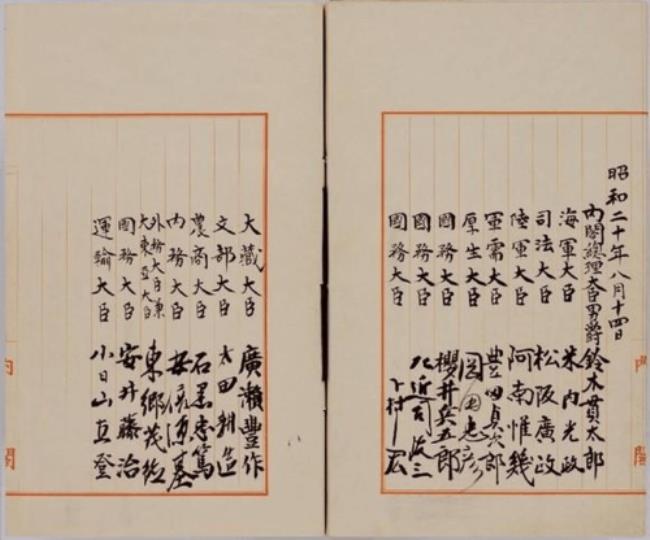 昭和二十年八月十四日
内閣總理大臣男爵 鈴木貫太郎
海軍大臣 米内光政
司法大臣 松阪廣政
陸軍大臣 阿南惟幾
軍需大臣 豊田貞次郎
厚生大臣 岡田忠彦
國務大臣 櫻井兵五郎
國務大臣 左近司政三
國務大臣 下村宏
大藏大臣 廣瀬豐作
文部大臣 太田耕造
農商大臣 石黒忠篤
内務大臣 安倍源基
外務大臣兼
大東亞大臣 東郷茂徳
國務大臣 安井藤治
運輸大臣 小日山直登
内閣
内閣